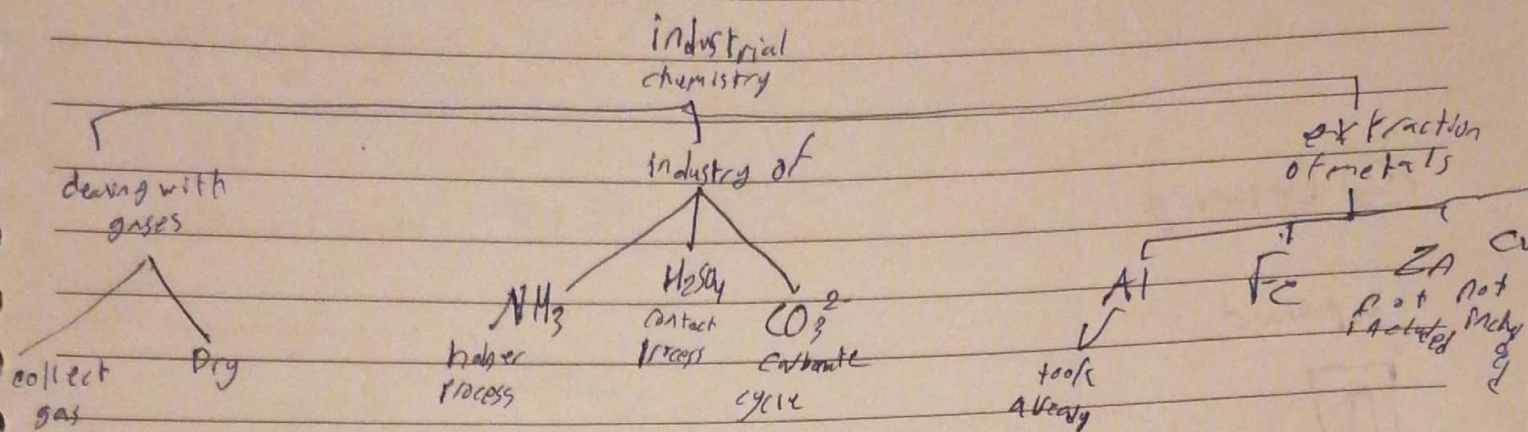 industrial
chemistry
dealing with
gases
collect
gas
Dry
industry of
NH3
haber
process
H2SO4
contact
process
CO3 2-
carbonate
cycle
extraction
of metals
Al
took
already
Fe
Zn
not
included
Cu
not
included